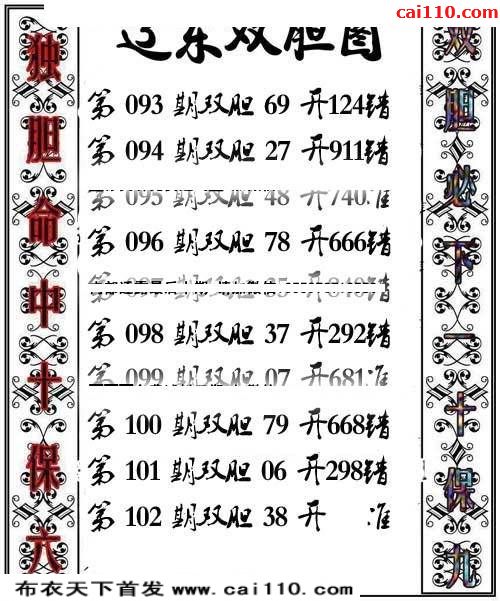 cai110.com
辽东双胆图
第 093 期双胆 69 开124错
第 094 期双胆 27 开911错
第 095 期双胆 48 开740准
第 096 期双胆 78 开666错
第 098 期双胆 37 开292错
第 099 期双胆 07 开681准
第 100 期双胆 79 开668错
第 101 期双胆 06 开298错
第 102 期双胆 38 开 准
独胆命中十保六
双胆必下一十保九
布衣天下首发 www.cai110.com